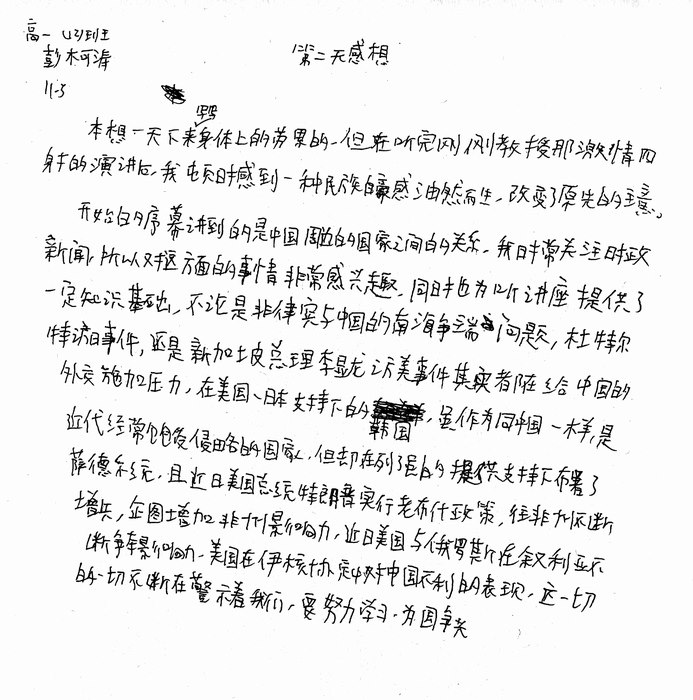 高一 (3)班
彭木可滢
第二天感想
11.3
本想一天下来身体上的劳累的,但在听完刚刚教授那激情四
射的演讲后,我顿时感到一种民族自豪感油然而生,改变了原先的主意。
开始的序幕讲到的是中国周边的国家之间的关系,我日常关注时政
新闻,所以对这方面的事情非常感兴趣,同时也为听讲座提供了
一定知识基础,不论是菲律宾与中国的南海争端问题,杜特尔
特访日事件,还是新加坡总理李显龙访美事件其实都在给中国的
外交施加压力,在美国、日本支持下的韩国,虽作为同中国一样,是
近代经常饱受侵略的国家,但却在列强的提供支持下布署了
萨德尔统,且近日美国总统特朗普实行老布什政策,往非洲不断
增兵,企图增加非洲影响力,近日美国与俄罗斯在叙利亚不
断争夺影响力,美国在伊核协定中对中国不利的表现,这一切
的一切不断在警示着我们,要努力学习,为国争光